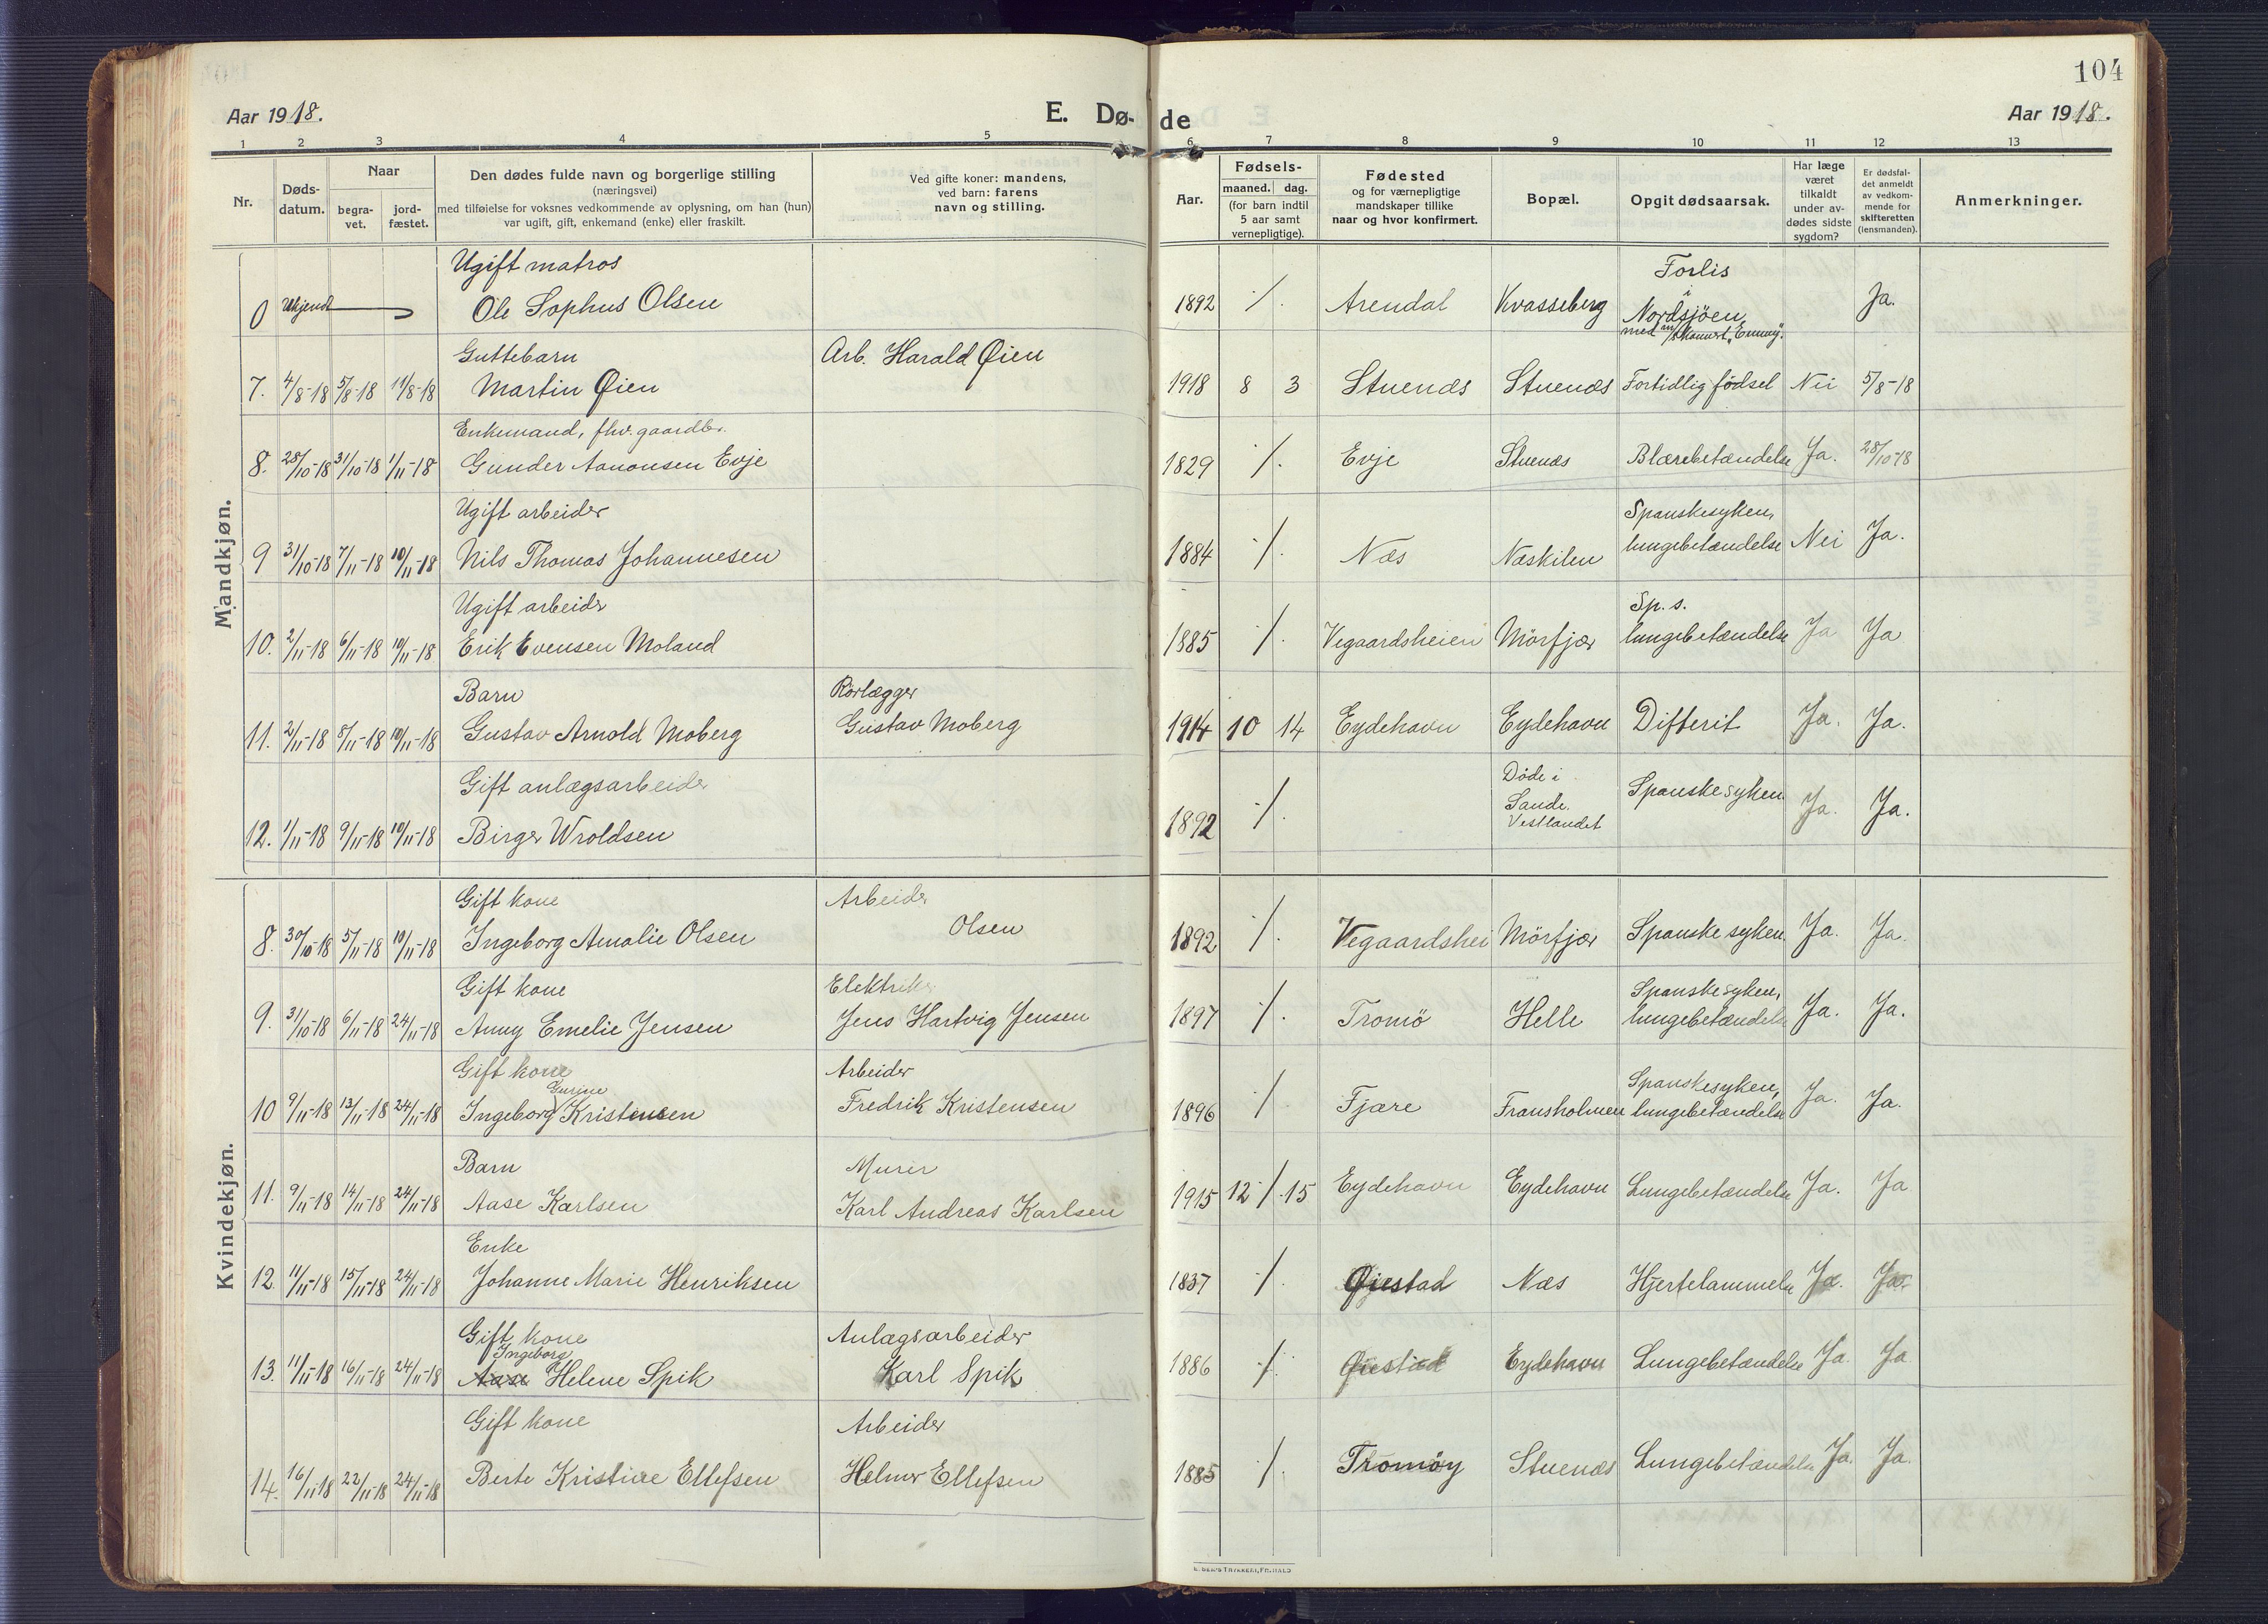 104
Aar 1918.
E. Dø-
de
Aar 1918.
1 2 3 4 5 6 7 8 9 10 11 12 13
Nr.
Døds-
datum.
Naar
begra-
vet.
jord-
fæstet.
Den dødes fulde navn og borgerlige stilling
(næringsvei)
med tilføielse for voksnes vedkommende av oplysning, om han (hun)
var ugift, gift, enkemand (enke) eller fraskilt.
Ved gifte koner: mandens,
ved barn: farens
navn og stilling.
Aar.
Fødsels-
maaned. dag.
(for barn indtil
5 aar samt
vernepligtige).
Fødested
og for værnepligtige
mandskaper tillike
naar og hvor konfirmert.
Bopæl.
Opgit dødsaarsak.
Har læge
været
tilkaldt
under av-
dødes sidste
sygdom?
Er dødsfal-
det anmeldt
av vedkom-
mende for
skifteretten
(lensmanden).
Anmerkninger.
Mandkjøn.
Ugift matros
Forlis
i
0 Ukjendt Ole Sophus Olsen 1892 ·/· Arendal Kvasseberg Nordsjöen Ja.
med m/skonnert "Emmy".
Guttebarn Arb. Harald Øien
7. 4/8-18 5/8-18 11/8-18 Martin Øien 1918 8 3 Stuenæs Stuenæs Fortidlig födsel Nei 5/8-18
Enkemand, fhv. gaardbr.
8. 28/10-18 31/10-18 1/11-18 Gunder Aanonsen Evje 1829 ·/· Evje Stuenæs Blærebetændelse Ja. 28/10-18
Ugift arbeider Spanskesyken,
9 31/10-18 7/11-18 10/11-18 Nils Thomas Johannesen 1884 ·/· Næs Næskilen lungebetændelse Nei Ja.
Ugift arbeider Sp. s.
10. 2/11-18 6/11-18 10/11-18 Erik Evensen Moland 1885 ·/· Vegaardsheien Mörfjær lungebetændelse Ja Ja
Barn Rörlægger
11. 2/11-18 8/11-18 10/11-18 Gustav Arnold Moberg Gustav Moberg 1914 10 14 Eydehavn Eydehavn Difterit Ja. Ja.
Gift anlægsarbeider Döde i
Sande.
Vestlandet
12. 1/11-18 9/11-18 10/11-18 Birger Wroldsen 1892 ·/· Spanskesyken. Ja. Ja.
Kvindekjøn.
Gift kone Arbeider
8. 30/10-18 5/11-18 10/11-18 Ingeborg Amalie Olsen Olsen 1892 ·/· Vegaardshei Mörfjær Spanske syken. Ja. Ja.
Gift kone Elektriker Spanskesyken,
9. 31/10-18 6/11-18 24/11-18 Anny Emelie Jensen Jens Hartvig Jensen 1897 ·/· Tromö Helle lungebetændelse Ja. Ja.
Gift kone Arbeider Spanskesyken,
Gurine
10 9/11-18 13/11-18 24/11-18 Ingeborg Kristensen Fredrik Kristensen 1896 ·/· Fjære Fransholmen lungebetændelse Ja. Ja.
Barn Murer
11. 9/11-18 14/11-18 24/11-18 Aase Karlsen Karl Andreas Karlsen 1915 12 ·/· 15 Eydehavn Eydehavn Lungebetændelse Ja. Ja
Enke
12. 11/11-18 15/11-18 24/11-18 Johanne Marie Henriksen 1837 ·/· Øiestad Næs Hjertelammelse Ja. Ja.
Gift kone Anlægsarbeider
Ingeborg
13. 11/11-18 16/11-18 24/11-18 Aase Helene Spik Karl Spik 1886 ·/· Øiestad Eydehavn Lungebetændelse Ja. Ja
Gift kone Arbeider
14. 16/11-18 22/11-18 24/11-18 Berte Kristine Ellefsen Helmer Ellefsen 1885 ·/· Tromöy Stuenæs Lungebetændelse Ja. Ja.